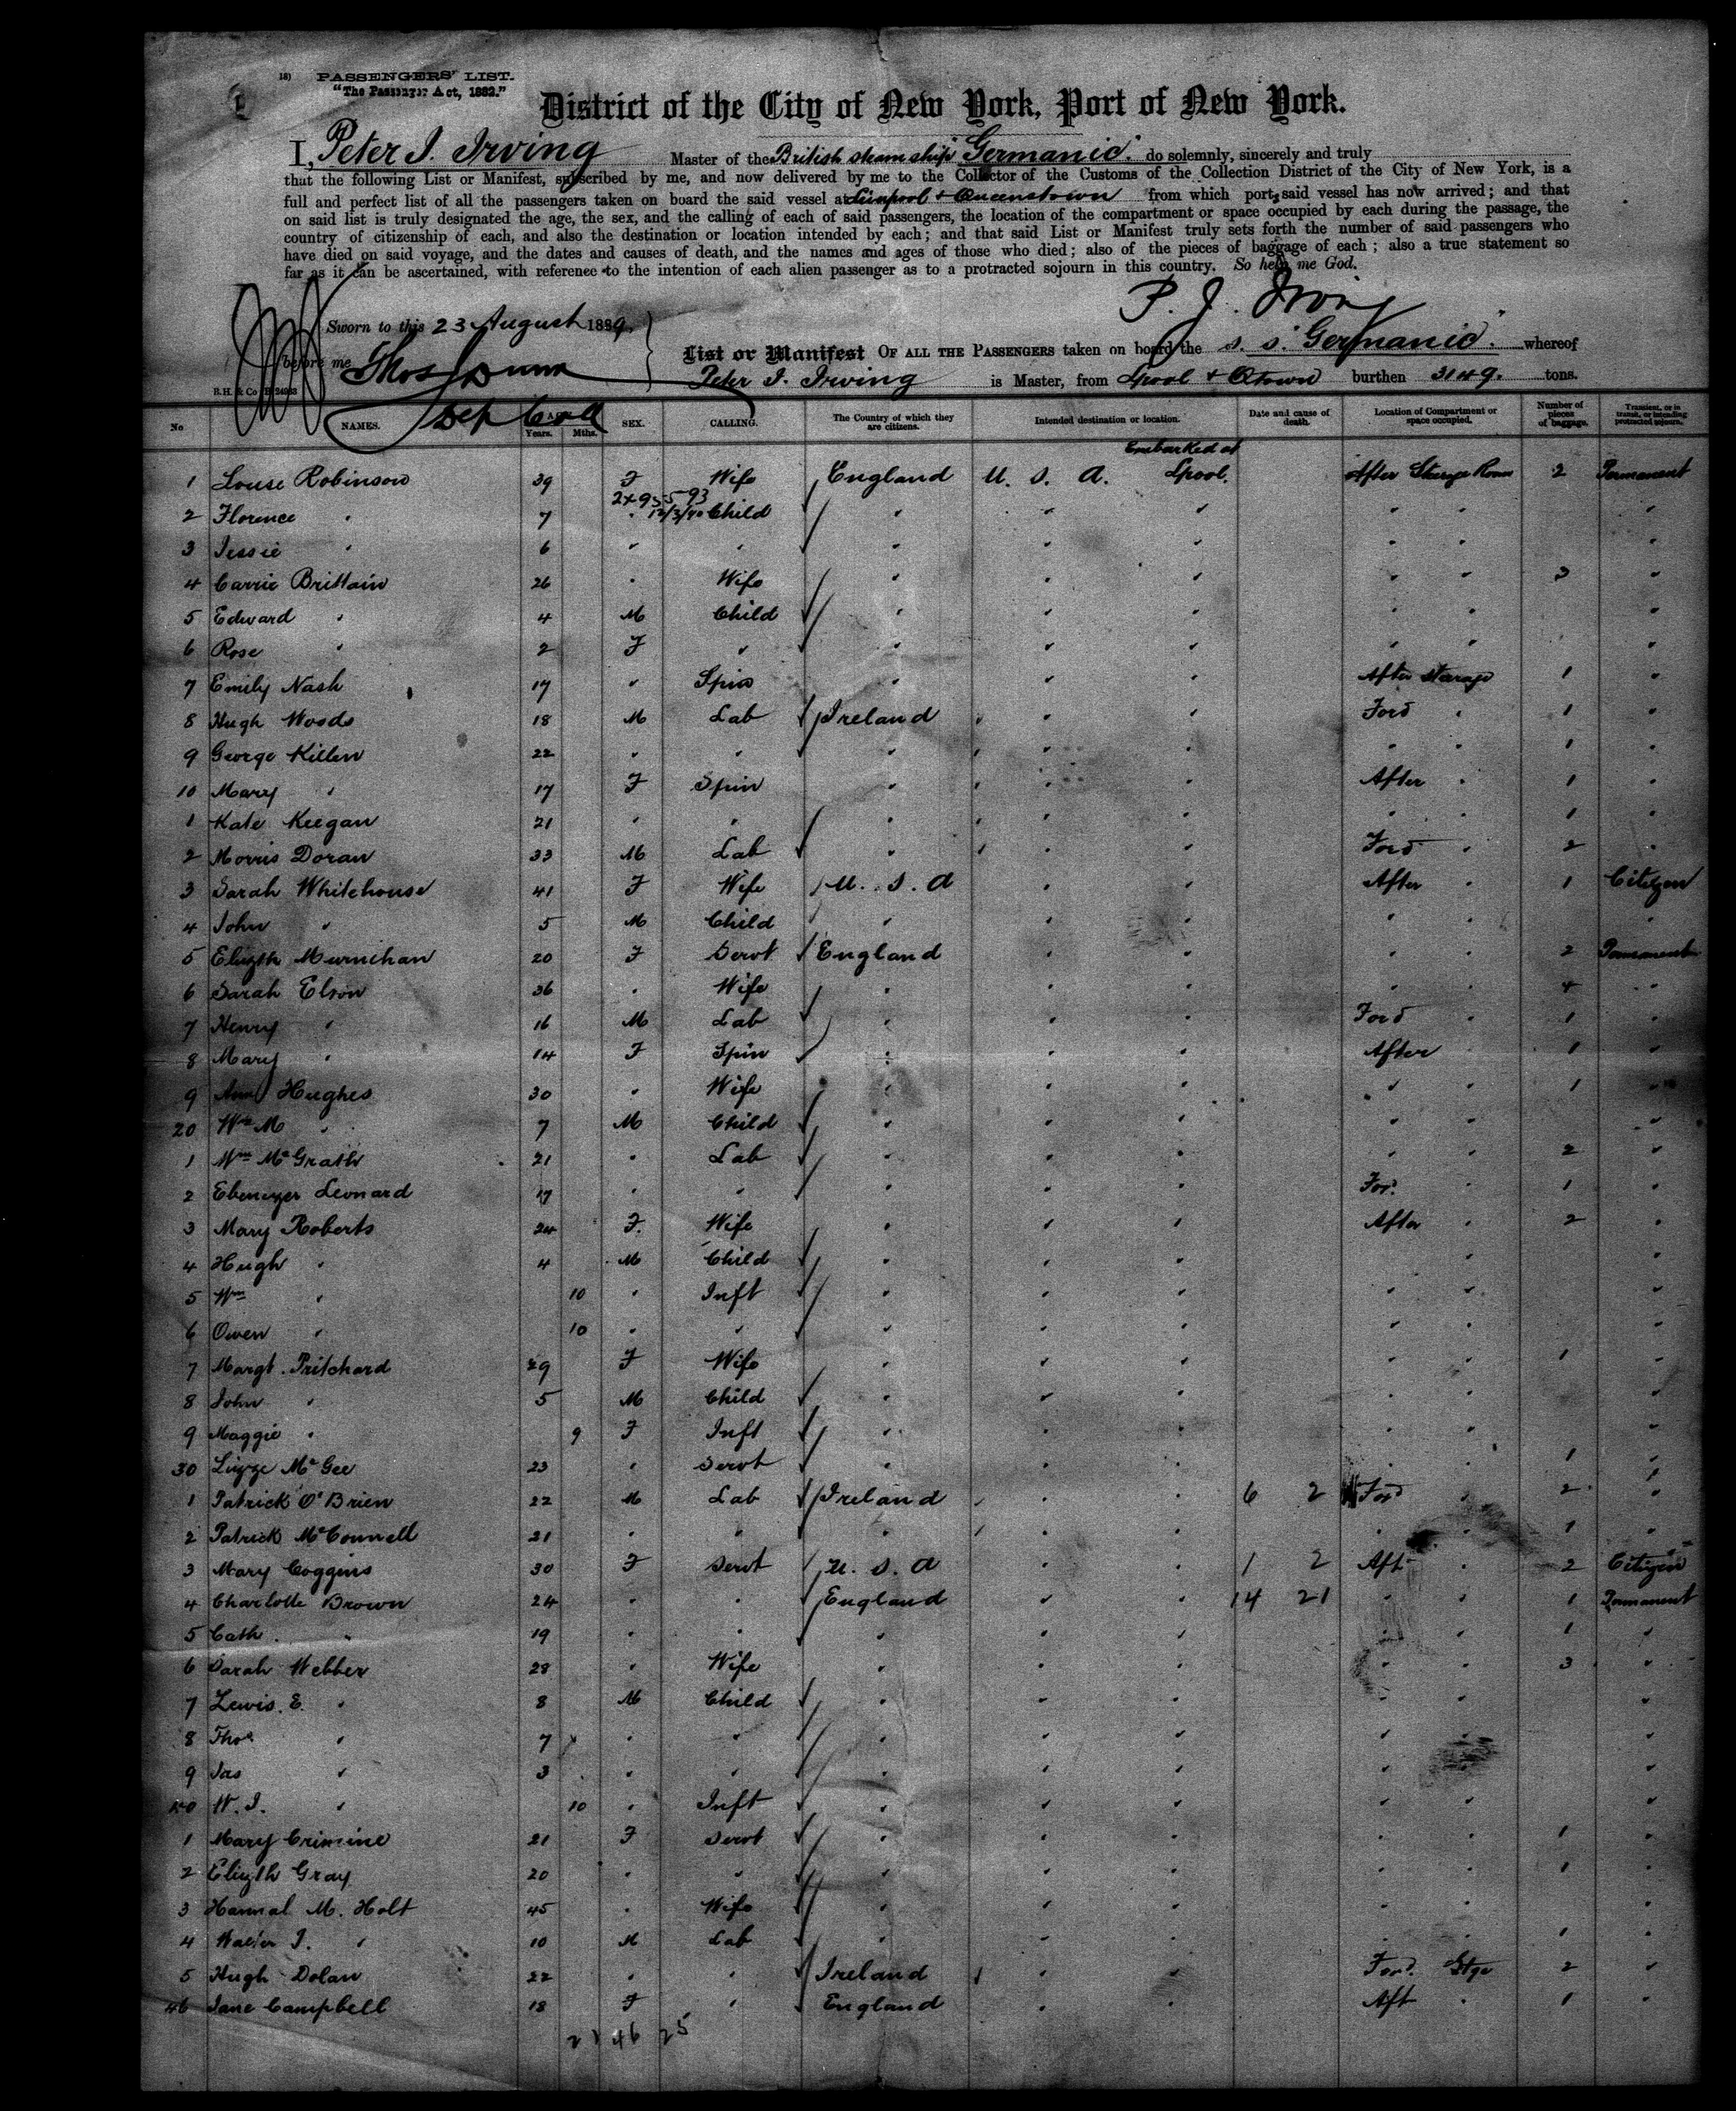 18) PASSENGERS' LIST.
"The Passenger Act, 1882."
District of the City of New York, Port of New York.
I, Peter J. Irving Master of the British steam ship "Germanic" do solemnly, sincerely and truly
that the following List or Manifest, subscribed by me, and now delivered by me to the Collector of the Customs of the Collection District of the City of New York, is a
full and perfect list of all the passengers taken on board the said vessel at Liverpool & Queenstown from which port, said vessel has now arrived; and that
on said list is truly designated the age, the sex, and the calling of each of said passengers, the location of the compartment or space occupied by each during the passage, the
country of citizenship of each, and also the destination or location intended by each; and that said List or Manifest truly sets forth the number of said passengers who
have died on said voyage, and the dates and causes of death, and the names and ages of those who died; also of the pieces of baggage of each; also a true statement so
far as it can be ascertained, with reference to the intention of each alien passenger as to a protracted sojourn in this country. So help me God.
P. J. Irving
Sworn to this 23 August 1889,
before me Thos Dunn
Dep Coll
List or Manifest OF ALL THE PASSENGERS taken on board the s. s. "Germanic" whereof
Peter J. Irving is Master, from Lpool & Qtown burthen 3149. tons.
B.H. & Co
No NAMES. Age Years. Mths. SEX. CALLING. The Country of which they are citizens. Intended destination or location. Date and cause of death. Location of Compartment or space occupied. Number of pieces of baggage. Transient, or in transit, or intending protracted sojourn.
Embarked at
1 Louise Robinson 39 F Wife England U. S. A. Lpool. After Steerage Room 2 Permanent
2 Florence " 7 " Child " " " " " "
3 Jessie " 6 " " " " " " " "
4 Carrie Brittain 26 " Wife " " " " " 3 "
5 Edward " 4 M Child " " " " " "
6 Rose " 2 F " " " " " " "
7 Emily Nash 17 " Spin " " " After steerage 1 "
8 Hugh Woods 18 M Lab Ireland " " Ford " 1 "
9 George Killen 22 " " " " " " " 1 "
10 Mary " 17 F Spin " " " After " 1 "
1 Kate Keegan 21 " " " " " " " 1 "
2 Morris Doran 33 M Lab " " " Ford " 2 "
3 Sarah Whitehouse 41 F Wife U. S. A " " After " 1 Citizen
4 John " 5 M Child " " " " " "
5 Elizth Murnihan 20 F Servt England " " " " 2 Permanent
6 Sarah Elson 36 " Wife " " " " " 4 "
7 Henry " 16 M Lab " " " Ford " 1 "
8 Mary " 14 F Spin " " " After " 1 "
9 Ann Hughes 30 " Wife " " " " " 1 "
20 Wm M " 7 M Child " " " " " "
1 Wm McGrath 21 " Lab " " " " " 2 "
2 Ebenezer Leonard 17 " " " " " For. " 1 "
3 Mary Roberts 24 F. Wife " " " After " 2 "
4 Hugh " 4 M Child " " " " "
5 Wm " 10 " Inft " " " " " "
6 Owen " 10 " " " " " " " "
7 Margt. Pritchard 29 F Wife " " " " " 1 "
8 John " 5 M Child " " " " " "
9 Maggie " 9 F Inft " " " " " "
30 Lizze McGee 23 " Servt " " " " " 1 "
1 Patrick O'Brien 22 M Lab Ireland " " 6 2 Ford " 2 "
2 Patrick McConnell 21 " " " " " " " 1 "
3 Mary Coggins 30 F Servt U. S. A " " 1 2 Aft " 2 Citizen
4 Charlotte Brown 24 " " England " " 14 21 " " 1 Permanent
5 Cath. " 19 " " " " " " " 1 "
6 Sarah Webber 28 " Wife " " " " " 3 "
7 Lewis. E. " 8 M Child " " " "
8 Thos " 7 " " " " " " " "
9 Jas " 3 " " " " " " "
40 W. J. " 10 " Inft " " " " " "
1 Mary Crimine 21 F Servt " " " " " 1 "
2 Elizth Gray 20 " " " " " " " 1 "
3 Hannal M. Holt 45 " Wife " " " " " "
4 Walter J. " 10 M Lab " " " " " 1 "
5 Hugh Dolan 22 " " Ireland " " Ford. Stge 2 "
46 Jane Campbell 18 F " England " " Aft " 1 "
21 46 25